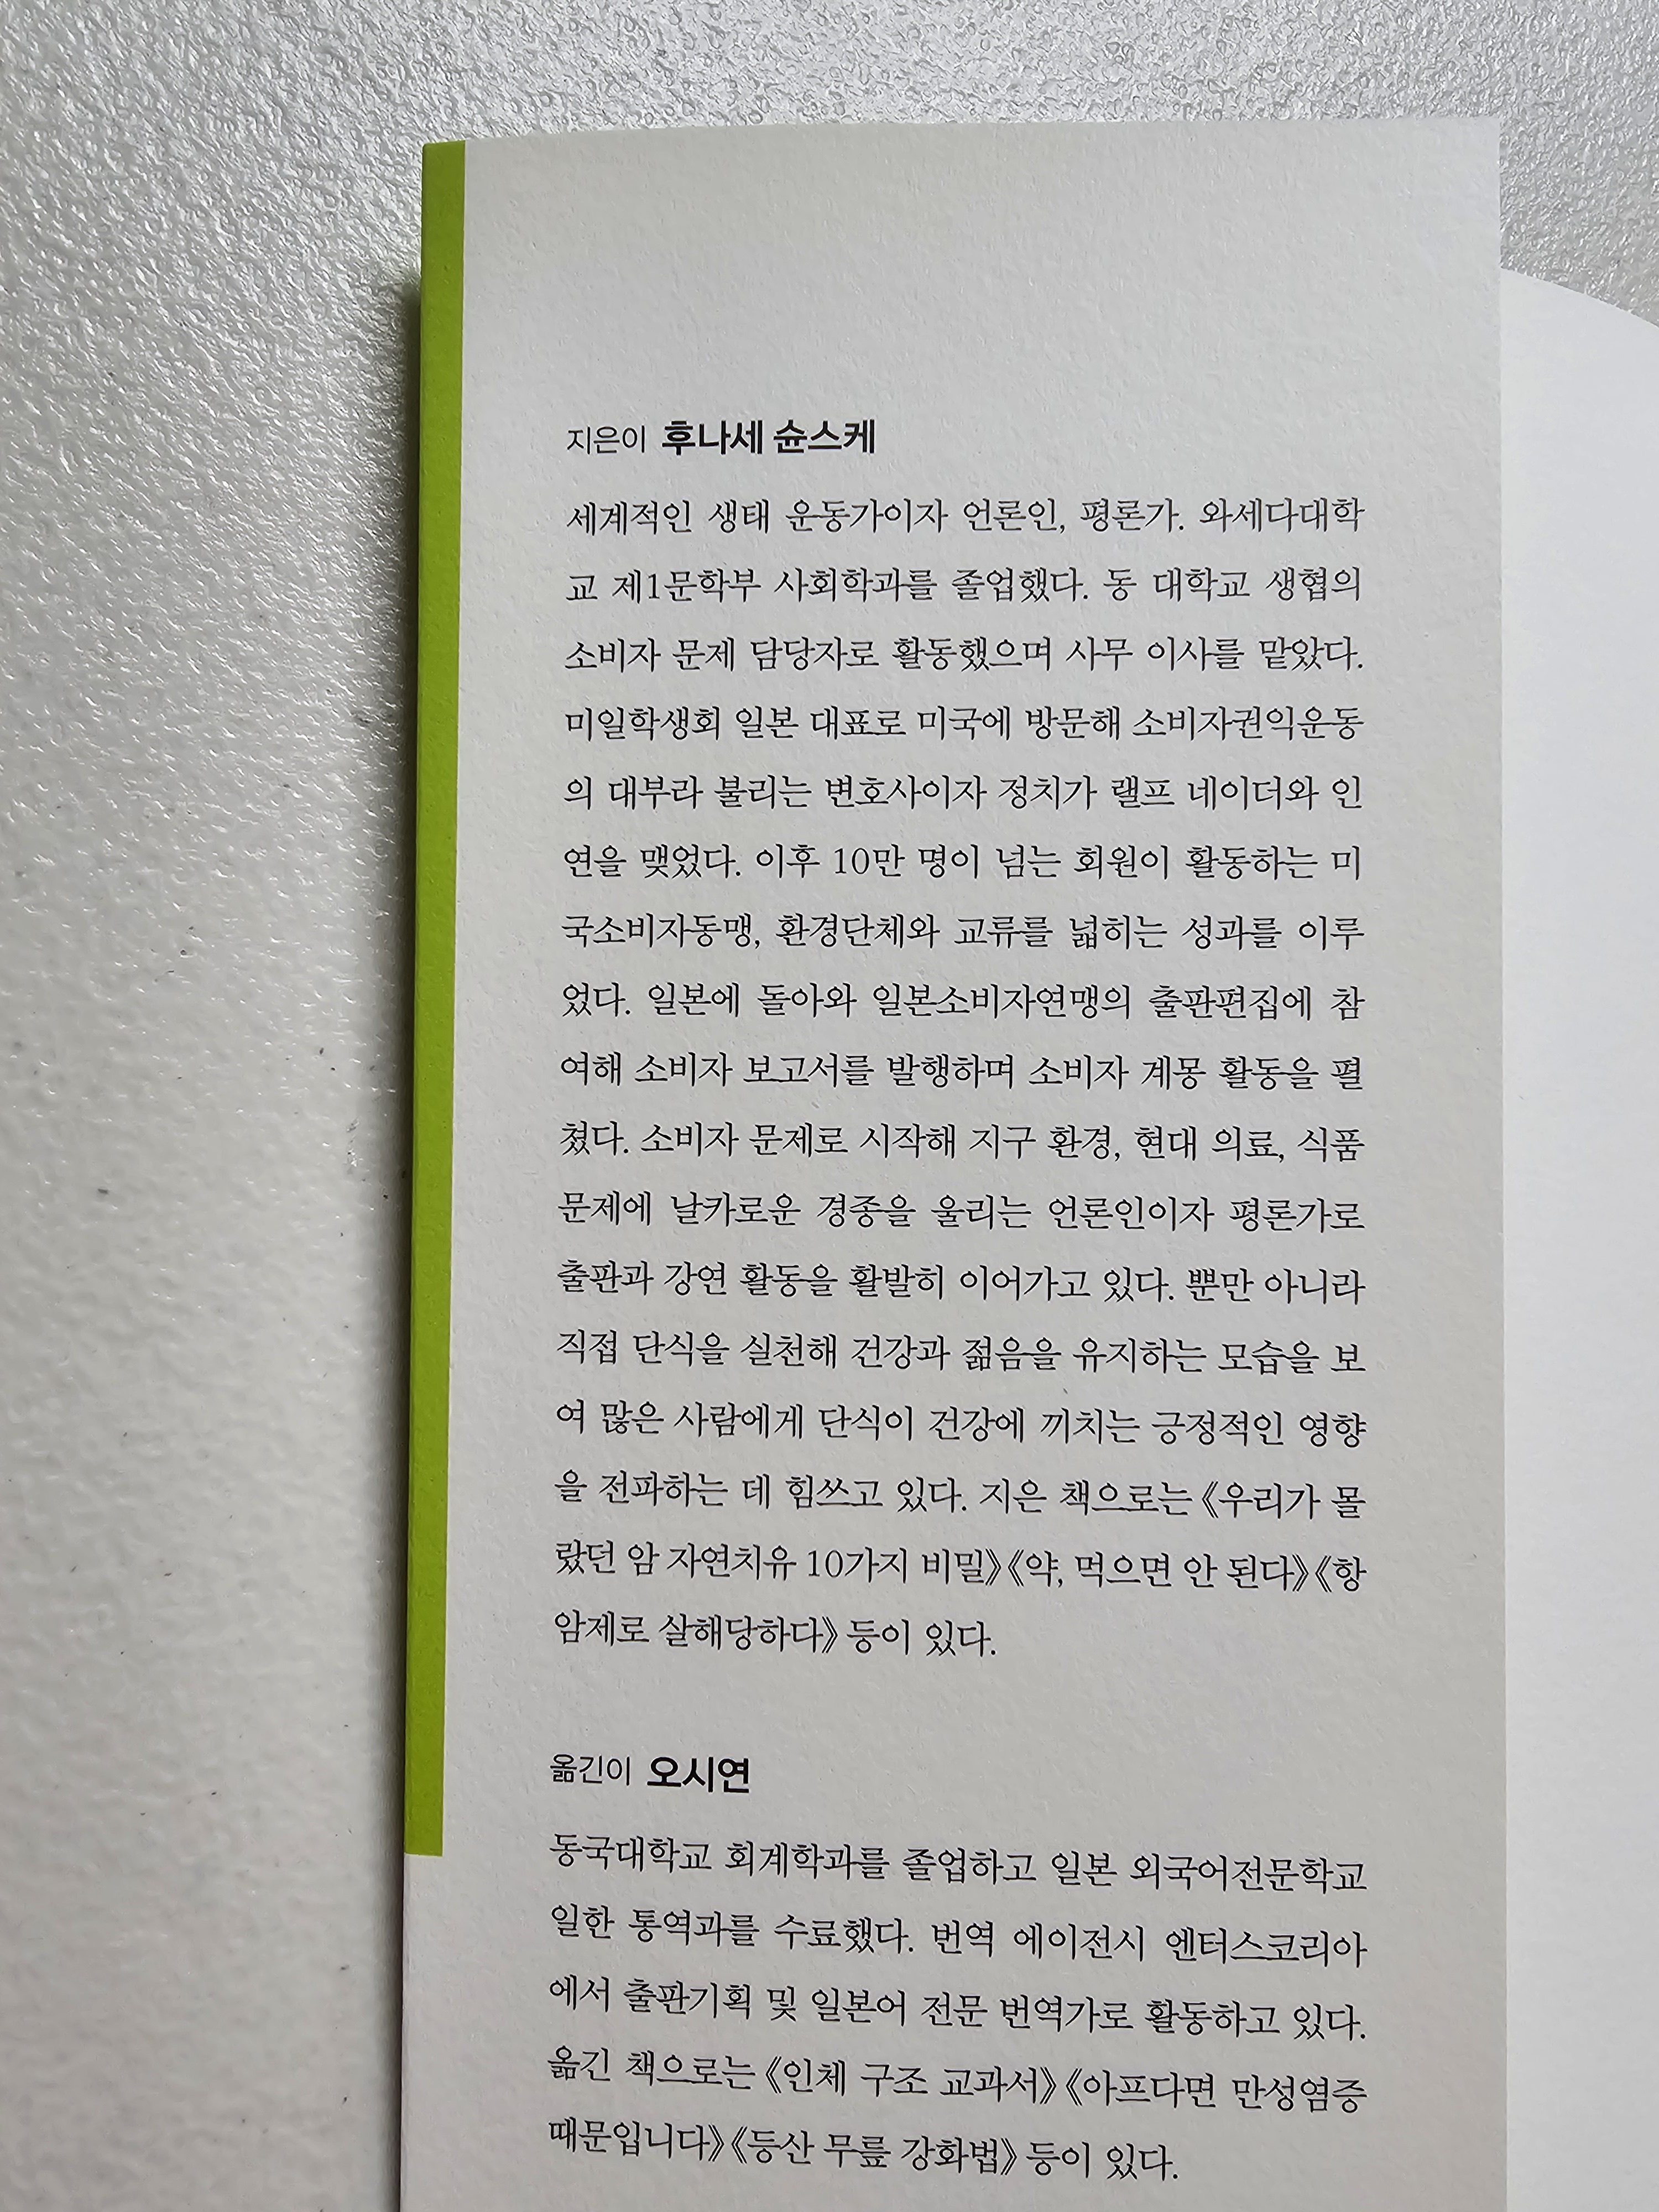 지은이 후나세 슌스케
세계적인 생태 운동가이자 언론인, 평론가. 와세다대학
교 제1문학부 사회학과를 졸업했다. 동 대학교 생협의
소비자 문제 담당자로 활동했으며 사무 이사를 맡았다.
미일학생회 일본 대표로 미국에 방문해 소비자권익운동
의 대부라 불리는 변호사이자 정치가 랠프 네이더와 인
연을 맺었다. 이후 10만 명이 넘는 회원이 활동하는 미
국소비자동맹, 환경단체와 교류를 넓히는 성과를 이루
었다. 일본에 돌아와 일본소비자연맹의 출판편집에 참
여해 소비자 보고서를 발행하며 소비자 계몽 활동을 펼
쳤다. 소비자 문제로 시작해 지구 환경, 현대 의료, 식품
문제에 날카로운 경종을 울리는 언론인이자 평론가로
출판과 강연 활동을 활발히 이어가고 있다. 뿐만 아니라
직접 단식을 실천해 건강과 젊음을 유지하는 모습을 보
여 많은 사람에게 단식이 건강에 끼치는 긍정적인 영향
을 전파하는 데 힘쓰고 있다. 지은 책으로는 《우리가 몰
랐던 암 자연치유 10가지 비밀》 《약, 먹으면 안 된다》 《항
암제로 살해당하다》 등이 있다.
옮긴이 오시연
동국대학교 회계학과를 졸업하고 일본 외국어전문학교
일한 통역과를 수료했다. 번역 에이전시 엔터스코리아
에서 출판기획 및 일본어 전문 번역가로 활동하고 있다.
옮긴 책으로는 《인체 구조 교과서》 《아프다면 만성염증
때문입니다》 《등산 무릎 강화법》 등이 있다.